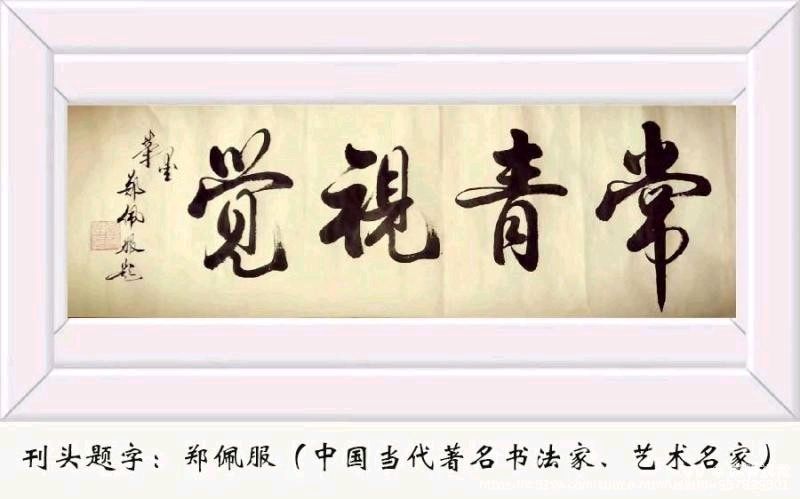 常青視觉
華墨
郑佩服题
刊头题字：郑佩服（中国当代著名书法家、艺术名家）